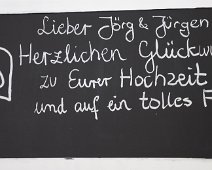 Lieber Jörg & Jürgen
Herzlichen Glückw
zu Eurer Hochzeit
und auf ein tolles F